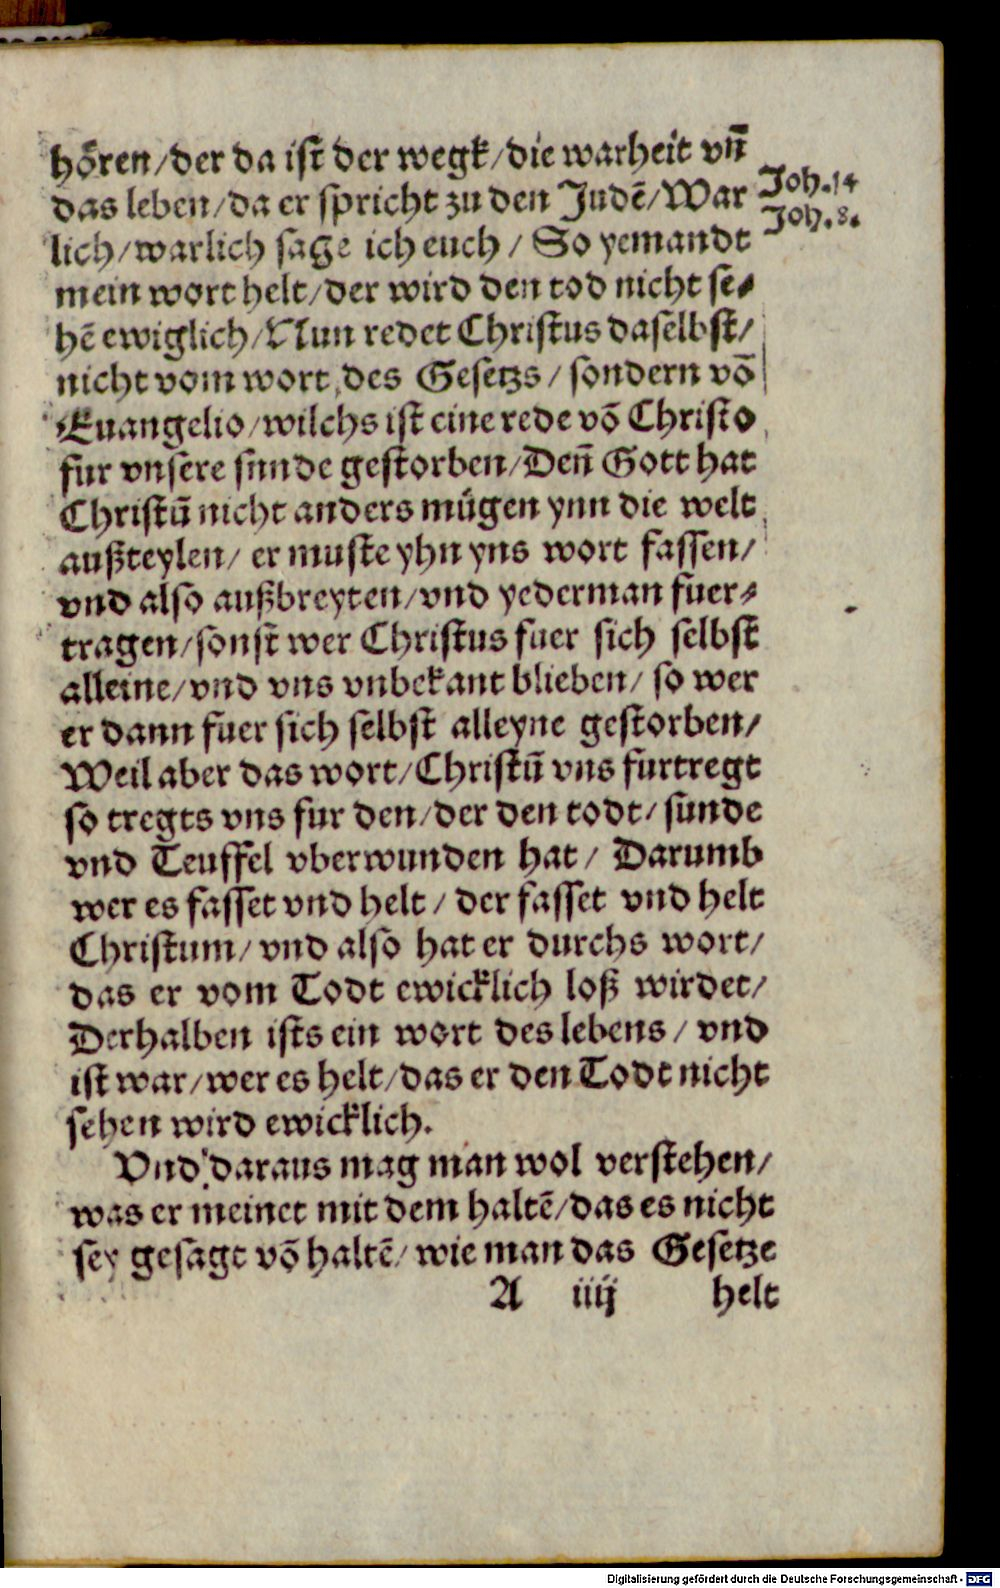 hören/der da ist der wegk/die warheit vn̄
das leben/da er spricht zu den Judē/War
Joh.14
lich/warlich sage ich euch / So yemandt
Joh.8.
mein wort helt/der wird den tod nicht se⸗
hē ewiglich/Nun redet Christus daselbst/
nicht vom wort des Gesetzs / sondern vō
Euangelio/wilchs ist eine rede vō Christo
fur vnsere sunde gestorben/Den̄ Gott hat
Christū nicht anders mügen ynn die welt
außteylen/ er muste yhn yns wort fassen/
vnd also außbreyten/vnd yederman fuer⸗
tragen/sonst wer Christus fuer sich selbst
alleine/vnd vns vnbekant blieben/ so wer
er dann fuer sich selbst alleyne gestorben/
Weil aber das wort/Christū vns furtregt
so tregts vns fur den/der den todt/ sunde
vnd Teuffel vberwunden hat/ Darumb
wer es fasset vnd helt / der fasset vnd helt
Christum/ vnd also hat er durchs wort/
das er vom Todt ewicklich loß wirdet/
Derhalben ists ein wort des lebens / vnd
ist war/wer es helt/das er den Todt nicht
sehen wird ewicklich.
Vnd daraus mag man wol verstehen/
was er meinet mit dem haltē/das es nicht
sey gesagt vō haltē/ wie man das Gesetze
A iiij helt
Digitalisierung gefördert durch die Deutsche Forschungsgemeinschaft - DFG